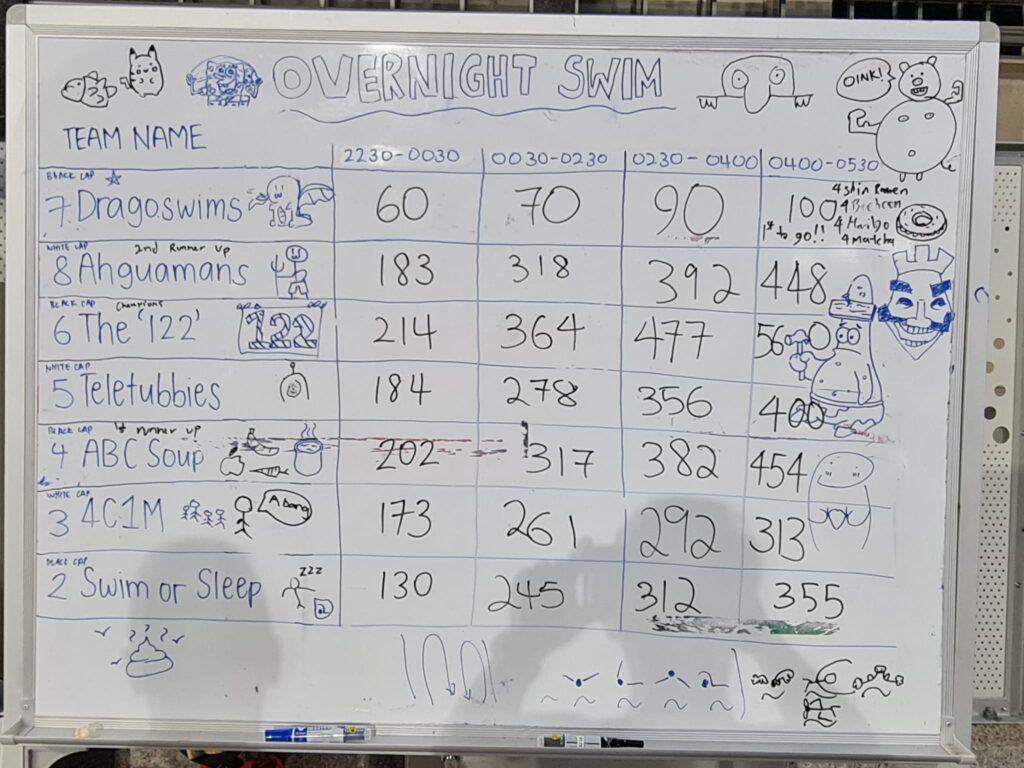 OVERNIGHT SWIM
OINK!
TEAM NAME
2230-0030 0030-0230 0230-0400 0400-0530
BLACK CAP
7 Dragoswims 60 70 90 100
1st to go!!
4 Shin Ramen
4
4 Haribo
4 Matcha
WHITE CAP 2nd Runner Up
8 Ahguamans 183 318 392 448
BLACK CAP Champions
6 The '122' 122 214 364 477 560
WHITE CAP
5 Teletubbies 184 278 356 400
BLACK CAP 1st runner up
4 ABC Soup 202 317 382 454
WHITE CAP
3 4C1M Abang 173 261 292 313
BLACK CAP
2 Swim or Sleep zzz 2 130 245 312 355